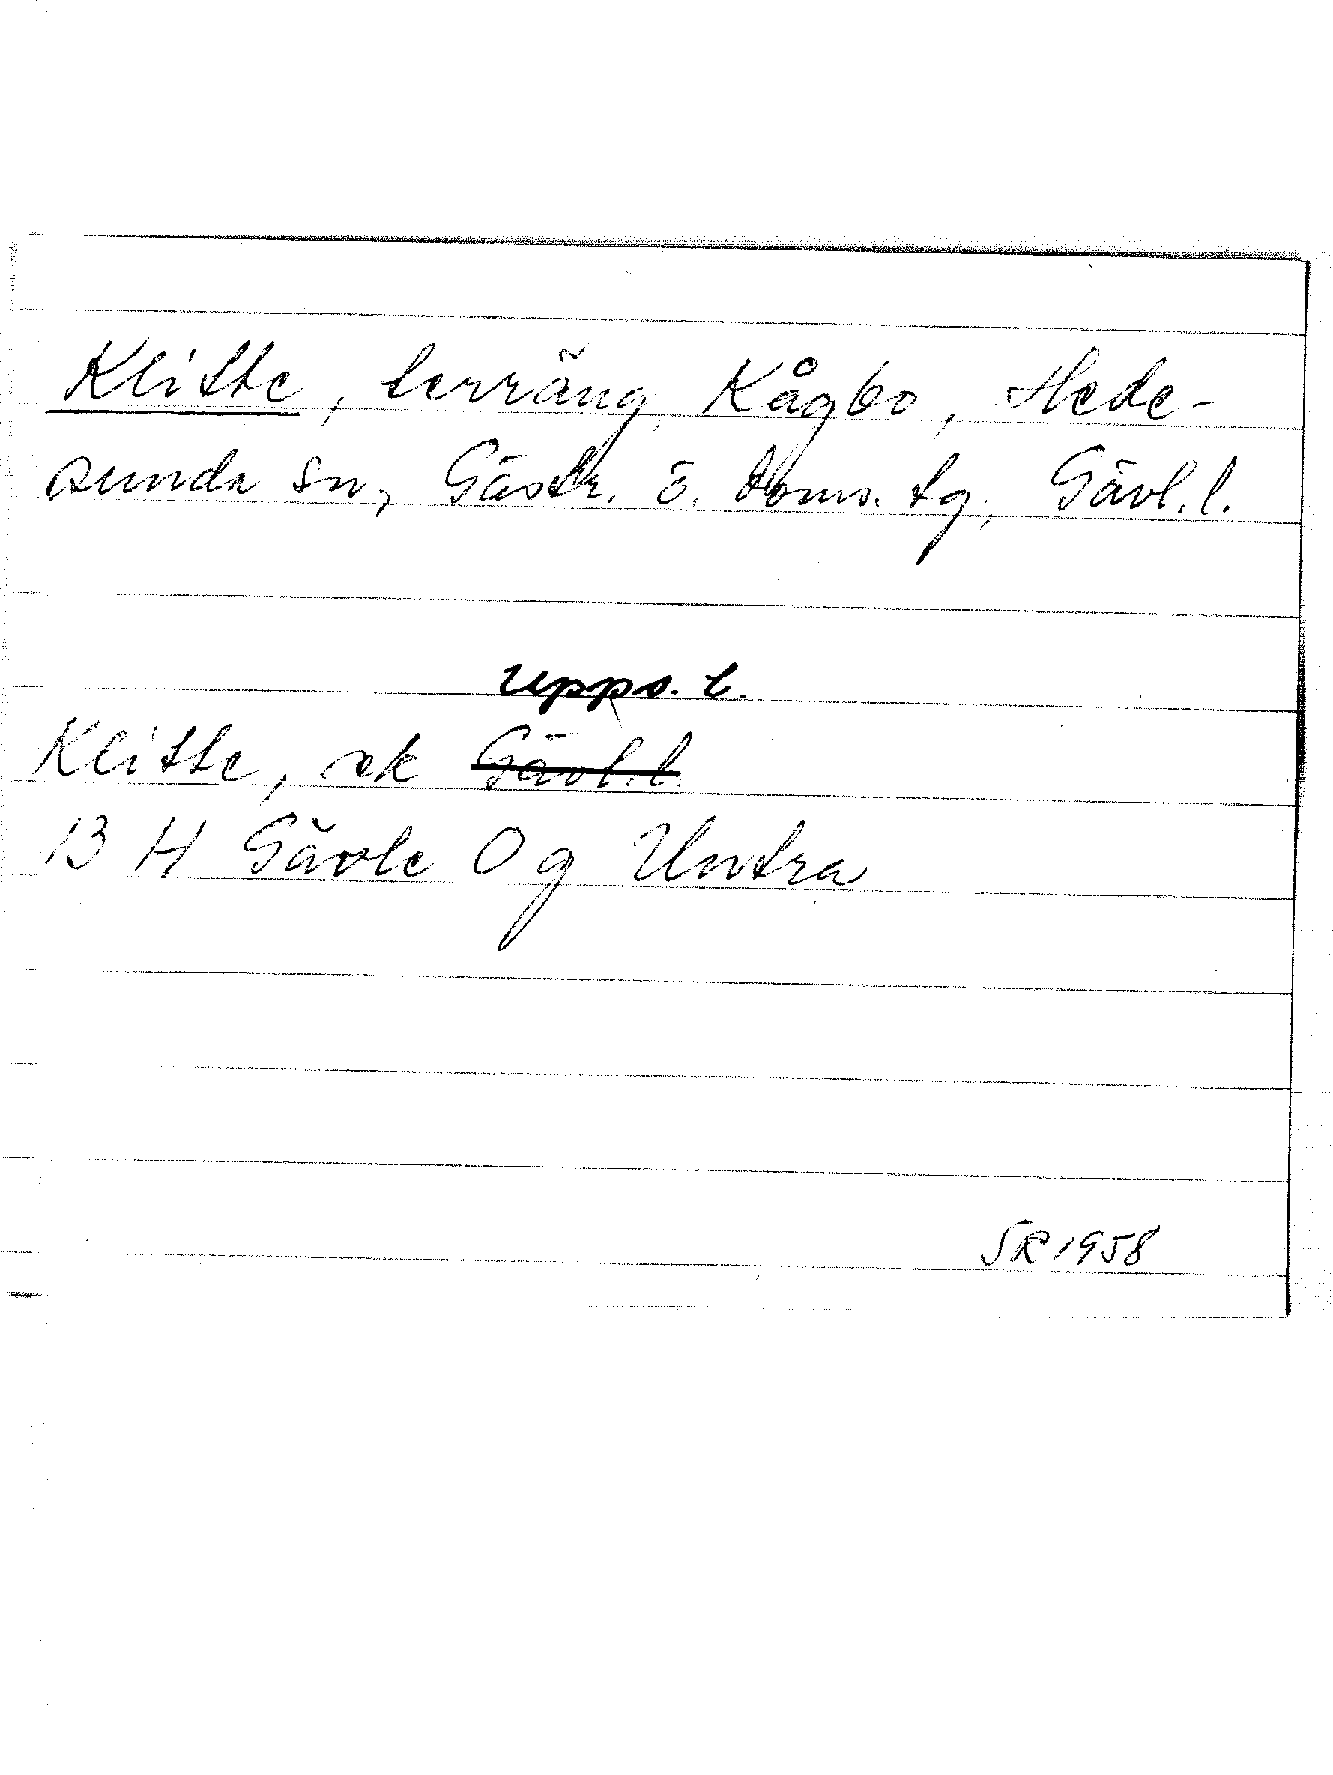 Klitte, terräng Kågbo, Hede-
sunda sn, Gästr. ö. doms. tg, Gävl.l.
Upps. l.
Klitte, ek Gävl.l.
13 H Gävle O g Untra
SR 1958